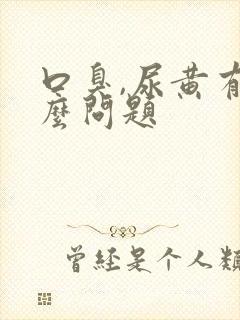 口臭,尿黄有
麼問題
曾经是个人類